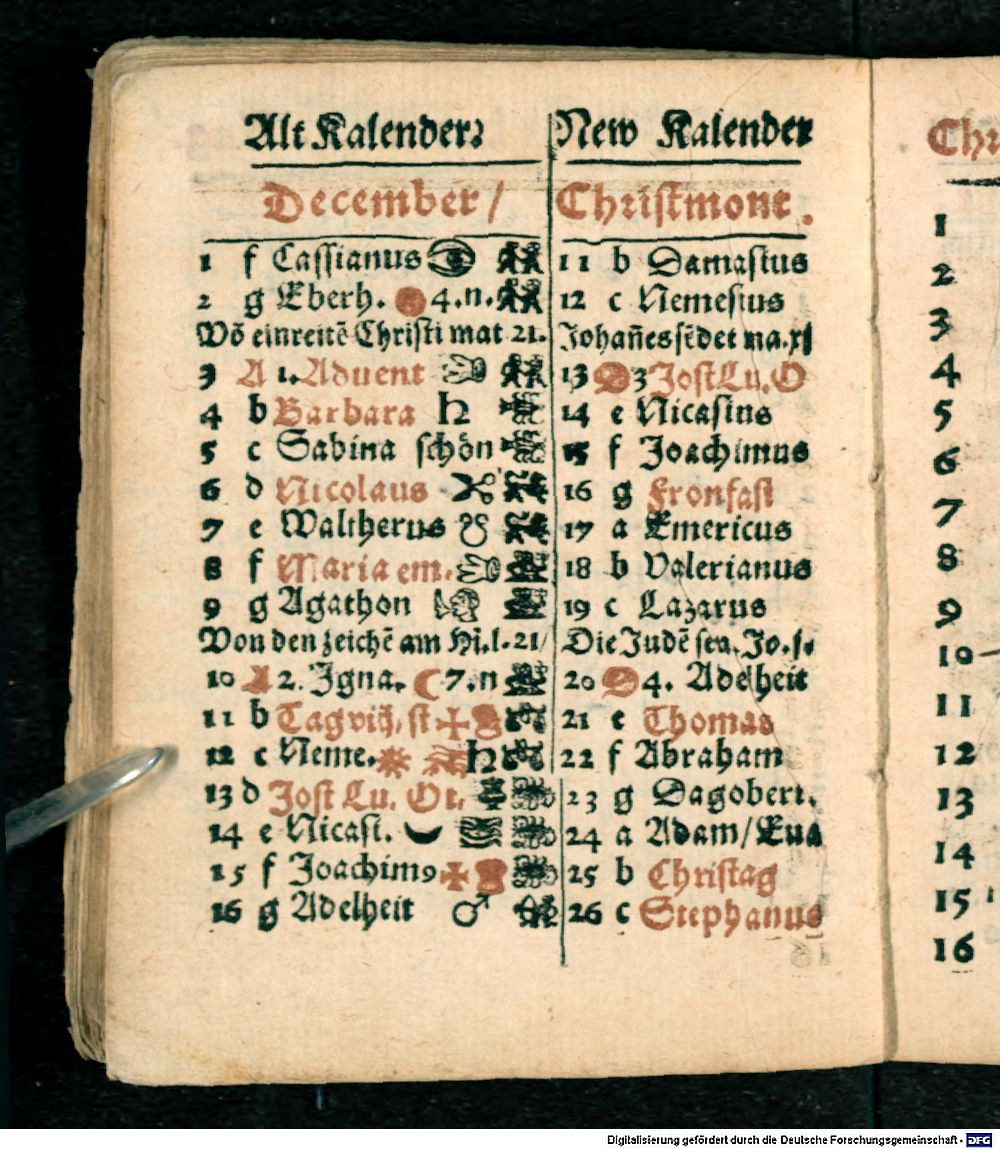 Alt Kalender: New Kalender
December / Christmont.
1 f Cassianus 11 b Damasius
2 g Eberh. 4. n. 12 c Nemesius
Vō einreitē Christi mat 21. Johañes sēdet ma. xj
3 A 1. Advent 13 D 3 Jost Lu. O
4 b Barbara ♄ 14 e Nicasius
5 c Sabina schön 15 f Joachimus
6 d Nicolaus 16 g Fronfast
7 e Waltherus 17 a Emericus
8 f Maria em. 18 b Valerianus
9 g Agathon 19 c Lazarus
Von den zeichē am Hi. l. 21/ Die Judē sen. Jo. j.
10 A 2. Igna. ☾ 7. n 20 D 4. Adelheit
11 b Tag 21 e Thomas
12 c Neme. ♄ 22 f Abraham
13 d Jost Lu. Ot. 23 g Dagobert.
14 e Nicasi. 24 a Adam / Eua
15 f Joachim9 25 b Christag
16 g Adelheit ♂ 26 c Stephanus
Chr
1
2
3
4
5
6
7
8
9
10
11
12
13
14
15
16
Digitalisierung gefördert durch die Deutsche Forschungsgemeinschaft - DFG